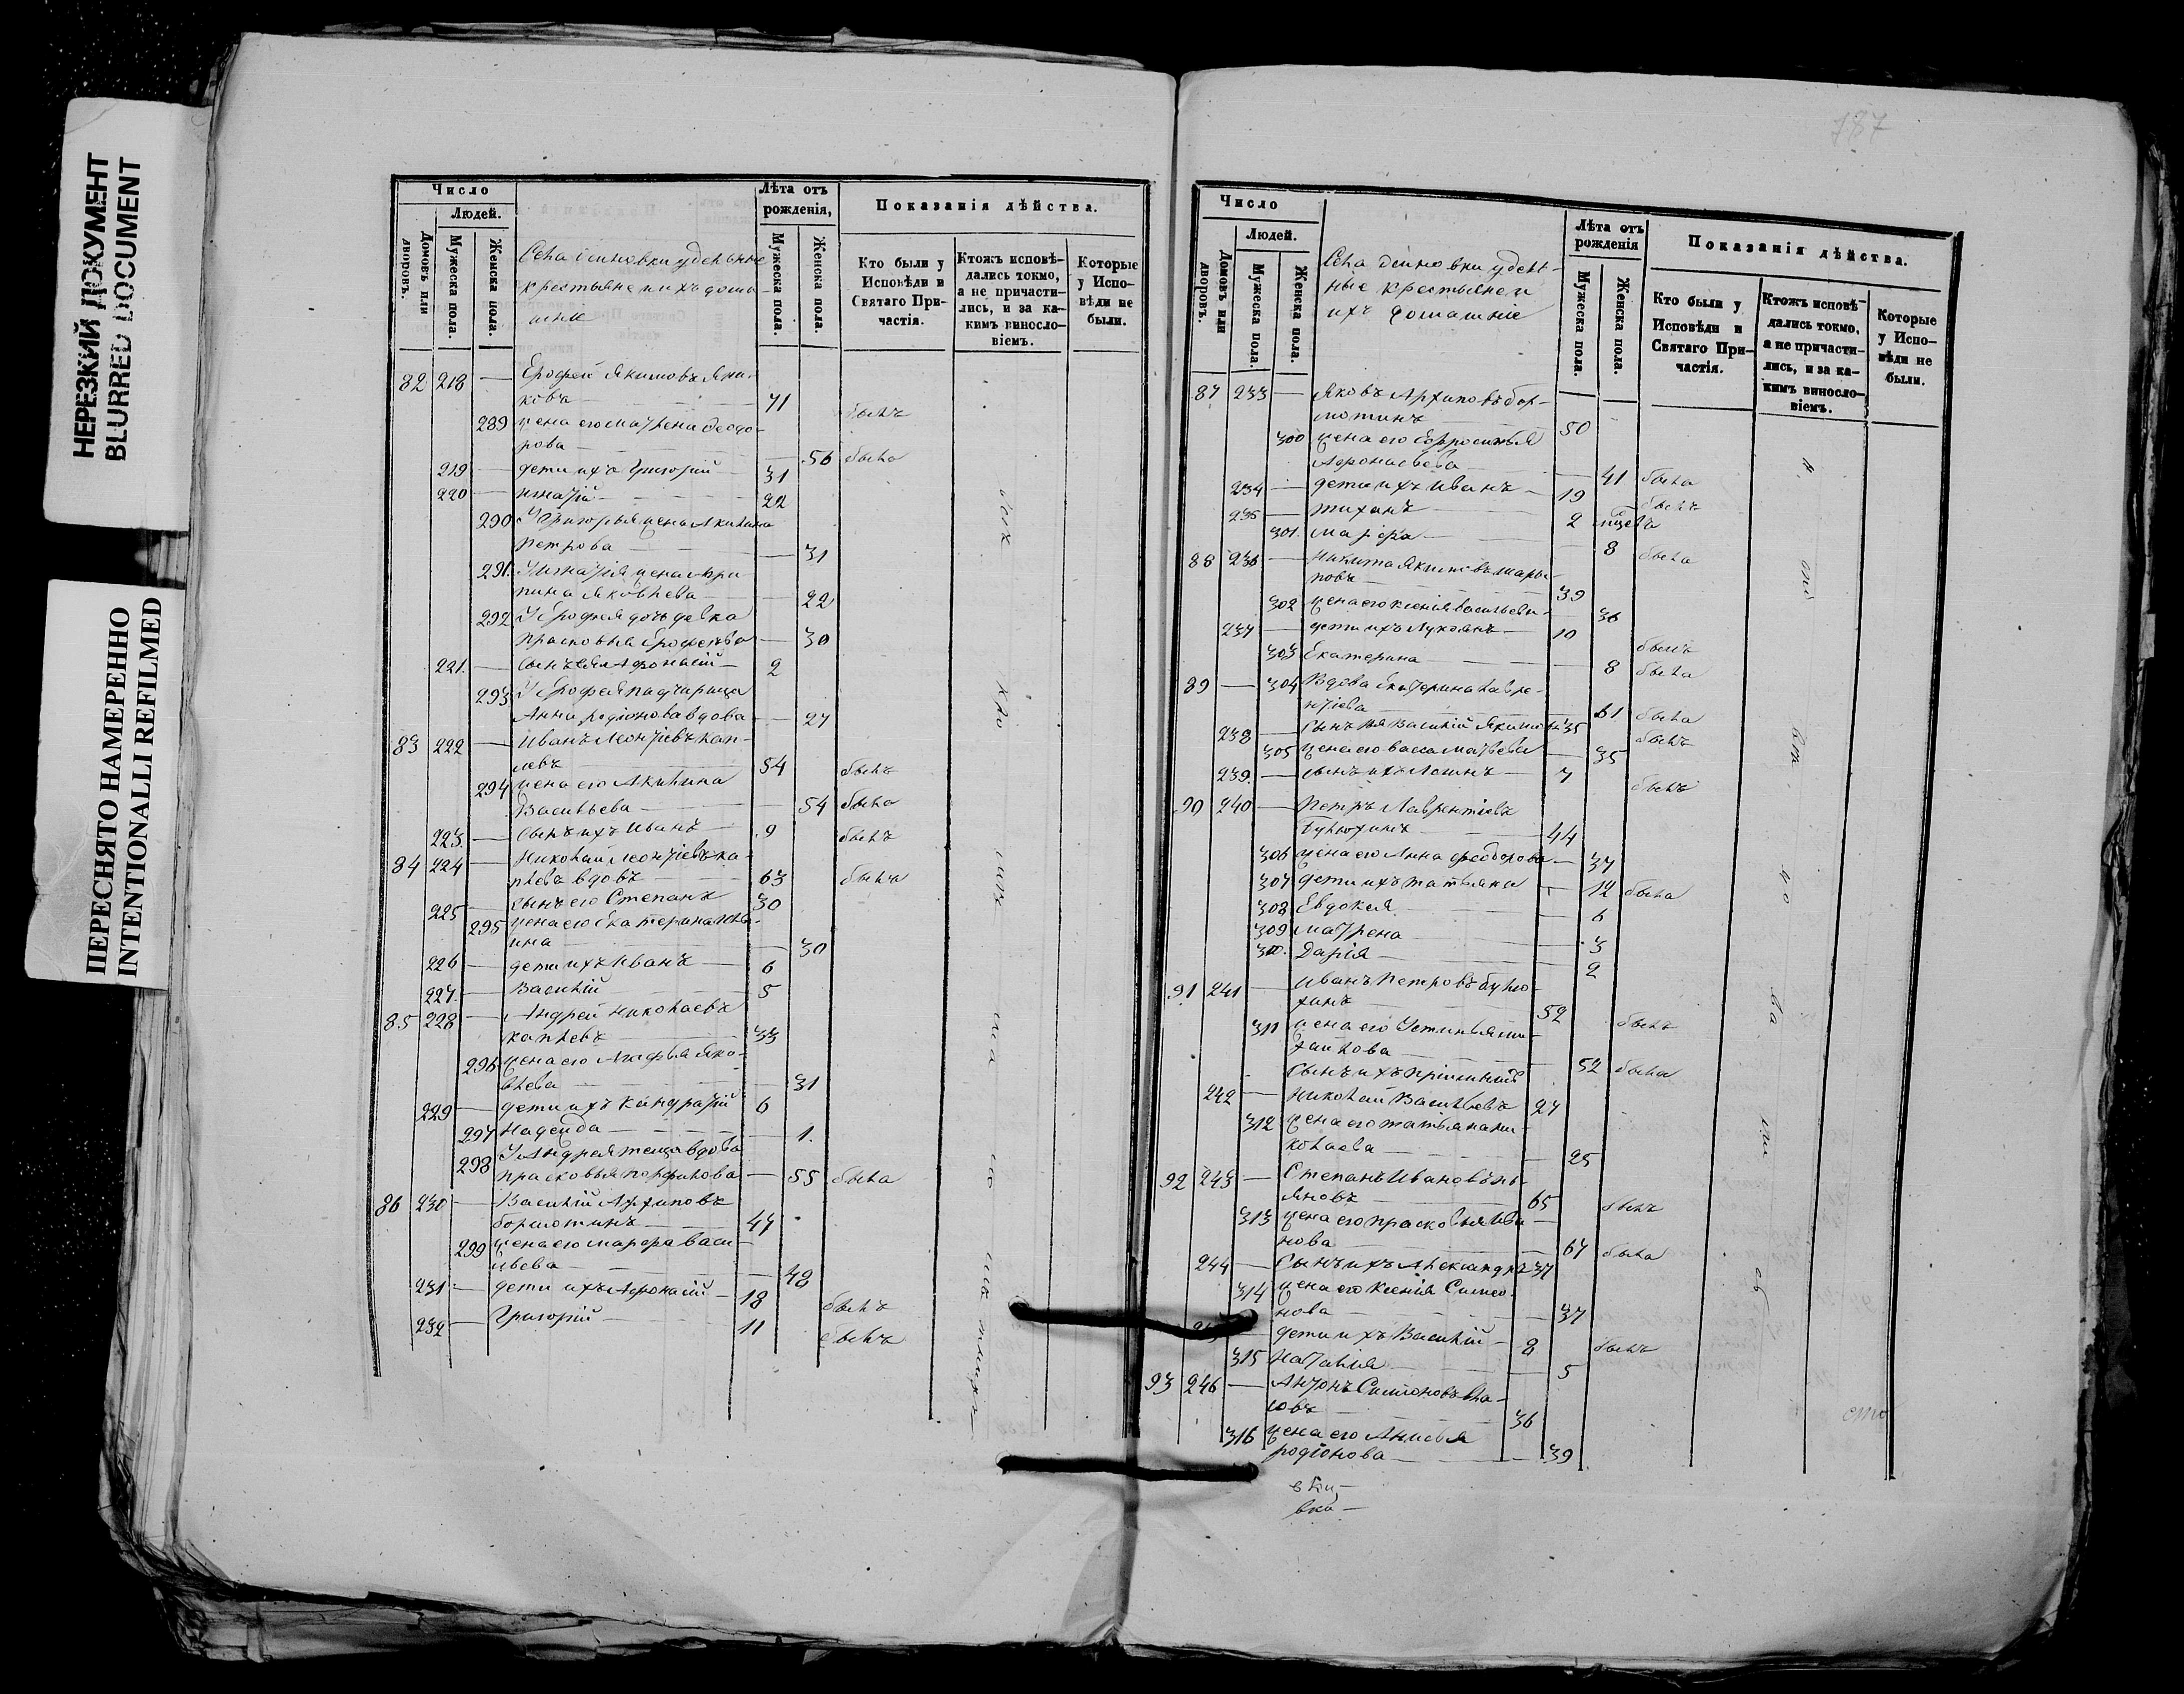 НЕРЕЗКИЙ ДОКУМЕНТ
BLURRED DOCUMENT
ПЕРЕСНЯТО НАМЕРЕННО
INTENTIONALLI REFILMED
Число
Людей.
Домовъ или дворовъ.
Мужеска пола.
Женска пола.
Лѣта отъ рожденія,
Мужеска пола.
Женска пола.
Показанія дѣйства.
Кто были у Исповѣди и Святаго Причастія.
Ктожъ исповѣдались токмо, а не причастились, и за какимъ винословіемъ.
Которые у Исповѣди не были.
удельные
крестьяне и ихъ дома-
шние
82 218 — Ерофей Якимовъ
71 былъ
289 жена его Матрена Феодо-
рова — 56 была
219 — дети ихъ Григорий — 31
220 — Игнатий — 22
290 У Григорья жена Акилина
Петрова — 31
291 У Игнатия жена Агри-
пина Яковлева — 22
292 У Ерофея дочь девка
Прасковья Ерофеева — 30
221. — сынъ ея Афонасий — 2
293 У Ерофея падчерица
Анна Родионова вдова — 27
83 222 — Иванъ Леонтиевъ Кап-
левъ — 54 былъ
294 жена его Акилина
Васильева — 54 была
223. — сынъ ихъ Иванъ — 9 былъ
84 224 — Николай Леонтиевъ Ка-
плевъ вдовъ — 63 былъ
225 — сынъ его Степанъ 30
295 жена его Екатерина Ильи-
ина — 30
226 — дети ихъ Иванъ — 6
227. — Василий — 5
85 228 — Андрей Николаевъ
Каплевъ — 33
296 жена его Агафья Яко-
влева — 31
229 — дети ихъ Кандратий 6
297 Надежда — 1.
298 У Андрея теща вдова
Прасковья Порфилова — 55 была
86 230 — Василий Архиповъ
Бормотинъ — 47
299 жена его Марфа Васи-
льева — 48
231 — дети ихъ Афонасий — 18 былъ
232 — Григорий — 11 былъ
787
Число
Людей.
Домовъ или дворовъ.
Мужеска пола.
Женска пола.
Лѣта отъ рожденія
Мужеска пола.
Женска пола.
Показанія дѣйства.
Кто были у Исповѣди и Святаго Причастія.
Ктожъ исповѣдались токмо, а не причастились, и за какимъ винословіемъ.
Которые у Исповѣди не были.
удель-
ные крестьяне и
ихъ домашние
87 233 — Яковъ Архиповъ Бор-
мотинъ — 50
300 жена его Ефросинья
Афонасьева — 41 была
234 — дети ихъ Иванъ — 19 былъ
235 — Тихонъ — 2
301. Марфа — 8 была
88 236 — Никита Якимовъ
39
302 жена его Ксения Васильева — 36
237 — дети ихъ Лукоянъ — 10 былъ
303 Екатерина — 8 была
89 — 304 Вдова Екатерина Лавре-
нтиева — 61 была
238 — сынъ ея Василий Якимовъ 35 былъ
305 жена его Васса Матвеева — 35
239. — сынъ ихъ Логинъ — 7 былъ
90 240 — Петръ Лаврентиевъ
44
306 жена его Анна Феодорова — 37
307 дети ихъ Татьяна — 12 была
308 Евдокея — 6
309 Матрена — 3
310. Дария — 2
91 241 — Иванъ Петровъ
52 былъ
311 жена его Устинья Ми-
хайлова — 52 была
сынъ ихъ
242 — Николай Васильевъ 27
312 жена его Татьяна Ни-
колаева — 25
92 243 — Степанъ Ивановъ
65 былъ
313 жена его Прасковья Ива-
нова — 67 была
244 — сынъ ихъ Александръ 37
314 жена его Ксения Симео-
нова — 37
дети ихъ Василий — 8 былъ
315 Наталия — 5
93 246 — Антонъ Симионовъ Вла-
совъ — 36
316 жена его Анисья
Родионова — 39